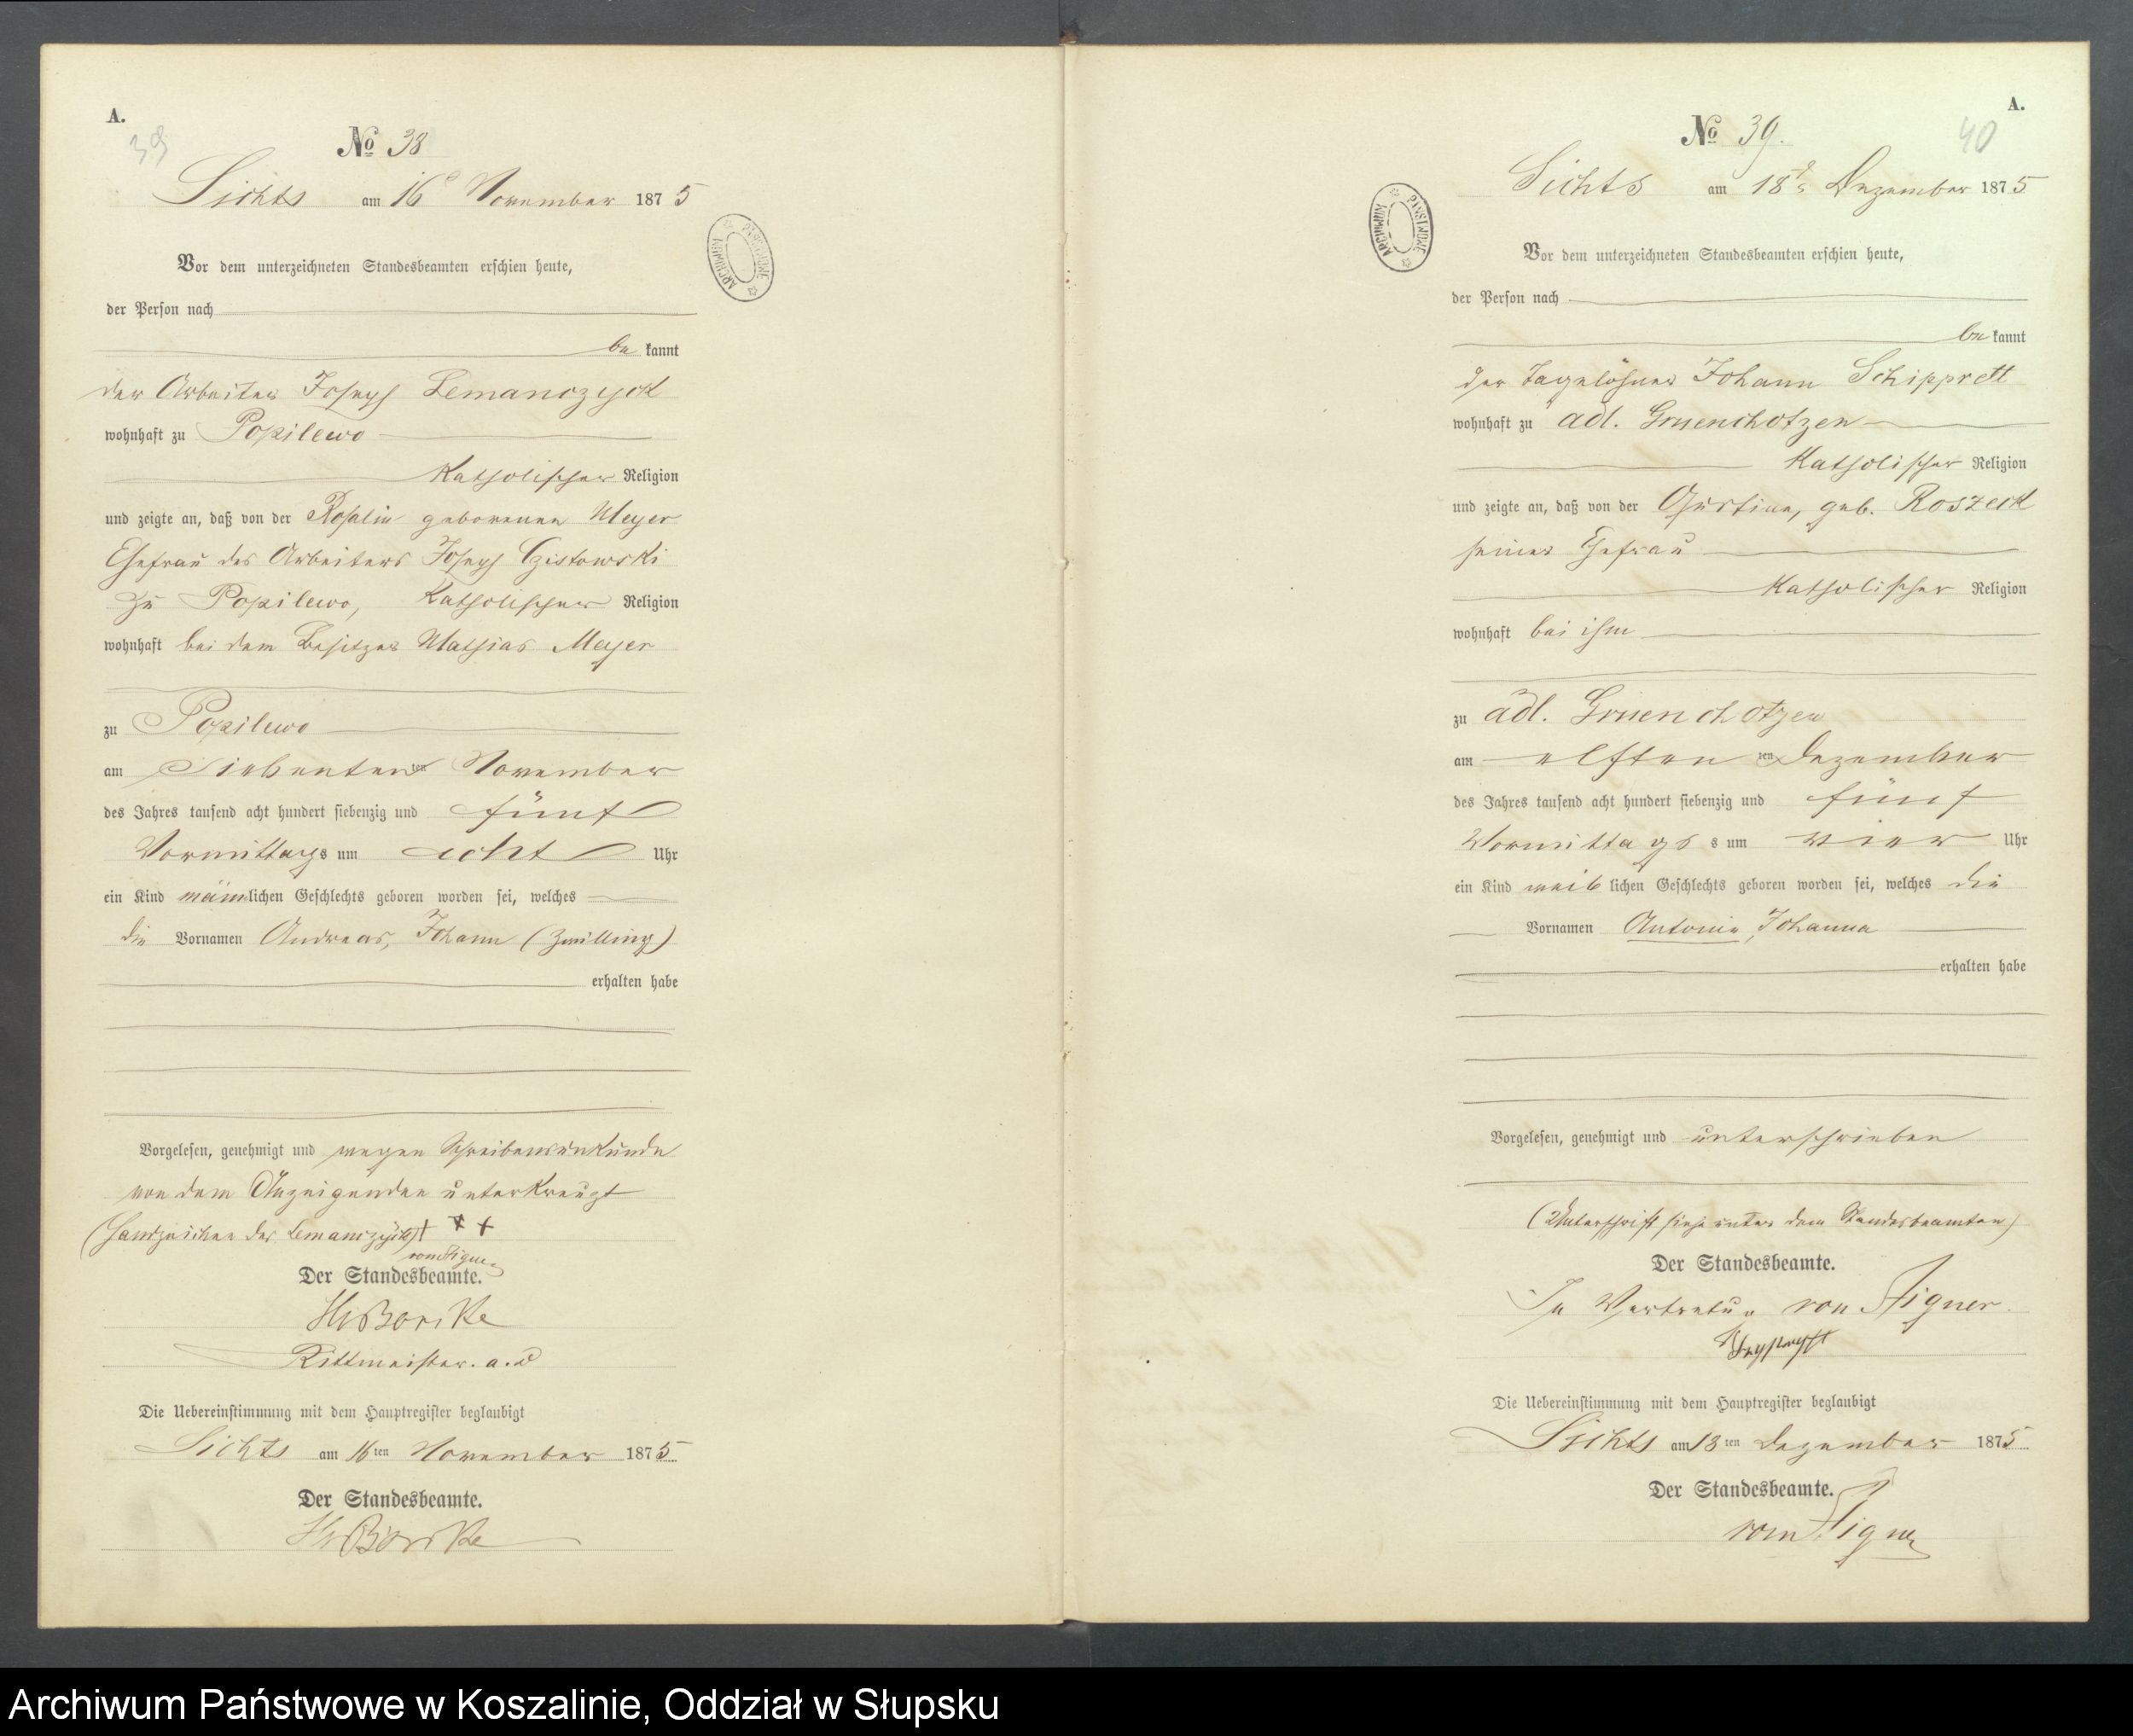 A.
39
No 38
Sichts am 16 November 1875
ARCHIWUM PAŃSTWOWE
Vor dem unterzeichneten Standesbeamten erschien heute,
der Person nach
be kannt
der Arbeiter Joseph Lemanczyck
wohnhaft zu Popilewo
Katholischer Religion
und zeigte an, daß von der Rosalie geborenen Meyer
Ehefrau des Arbeiters Joseph Czistowski
zu Popilewo, Katholischer Religion
wohnhaft bei dem Besitzer Mathias Meyer
zu Popilewo
am Siebenten ten November
des Jahres tausend acht hundert siebenzig und fünf
Vormittags um acht Uhr
ein Kind männlichen Geschlechts geboren worden sei, welches
die Vornamen Andreas, Johann (Zwilling)
erhalten habe
Vorgelesen, genehmigt und wegen Schreibensunkunde
von dem Anzeigenden unterkreuzt
(Handzeichen des Lemanczyck) + + +
Der Standesbeamte.
Rittmeister. a. D
Die Uebereinstimmung mit dem Hauptregister beglaubigt
Sichts am 16ten November 1875
Der Standesbeamte.
A.
40
No 39.
Sichts am 18 Dezember 1875
ARCHIWUM PAŃSTWOWE
Vor dem unterzeichneten Standesbeamten erschien heute,
der Person nach
be kannt
der Tagelöhner Johann Schipprett
wohnhaft zu adl. Gruenchotzen
Katholischer Religion
und zeigte an, daß von der geb. Roszeck
seiner Ehefrau
Katholischer Religion
wohnhaft bei ihm
zu adl. Gruenchotzen
am elften ten Dezember
des Jahres tausend acht hundert siebenzig und fünf
Vormittags s um vier Uhr
ein Kind weiblichen Geschlechts geboren worden sei, welches die
Vornamen Antonie, Johanna
erhalten habe
Vorgelesen, genehmigt und unterschrieben
(Unterschrift siehe unter dem Standesbeamten)
Der Standesbeamte.
In Vertretung von
Die Uebereinstimmung mit dem Hauptregister beglaubigt
Sichts am 18ten Dezember 1875
Der Standesbeamte.
Archiwum Państwowe w Koszalinie, Oddział w Słupsku